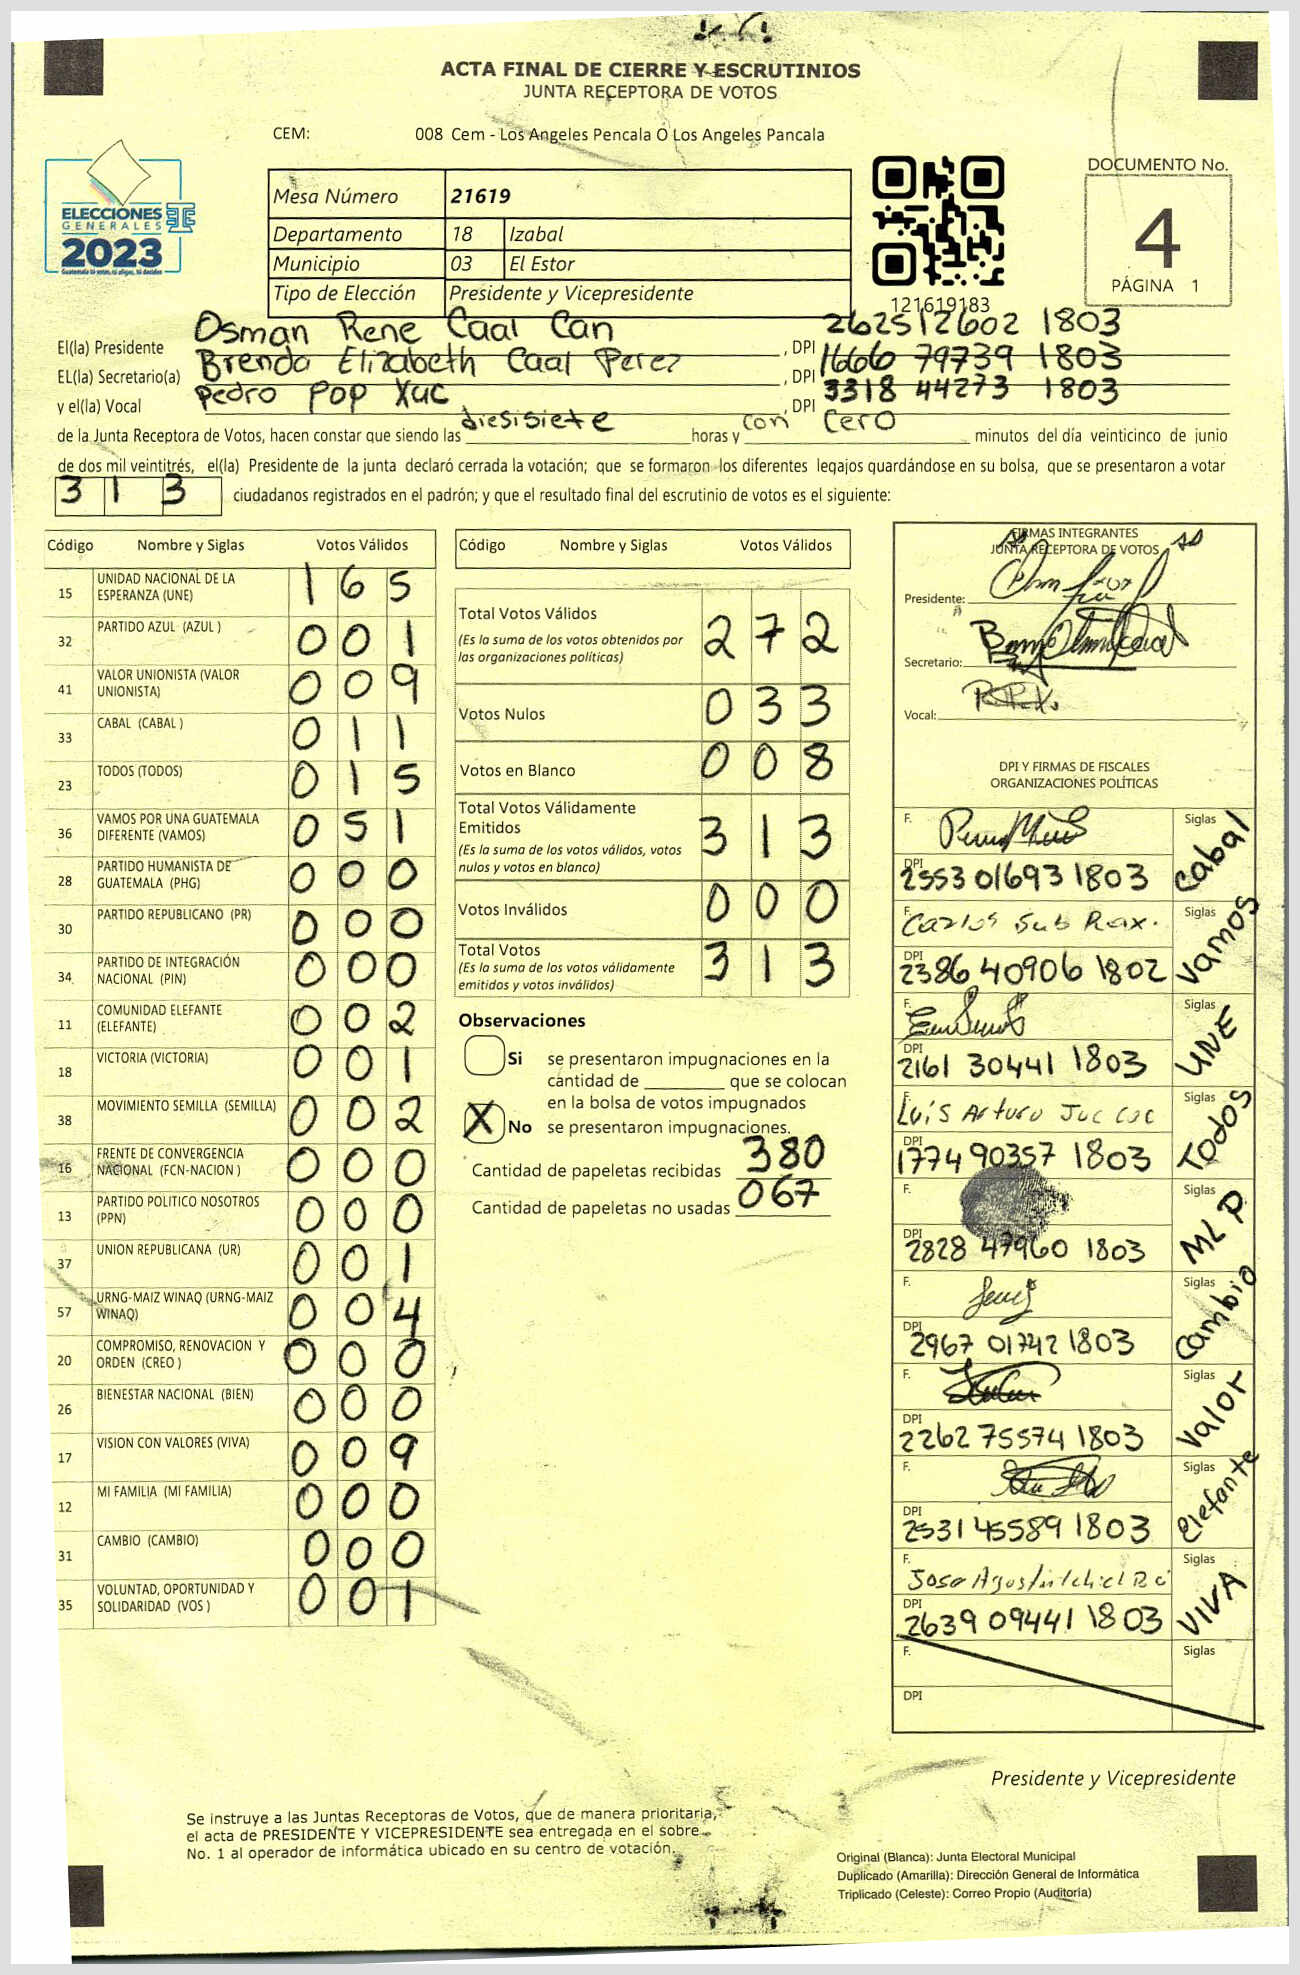 ACTA FINAL DE CIERRE Y ESCRUTINIOS
JUNTA RECEPTORA DE VOTOS
CEM: 008 Cem - Los Angeles Pencala O Los Angeles Pancala
ELECCIONES
GENERALES
2023
Mesa Número 21619
Departamento 18 Izabal
Municipio 03 El Estor
Tipo de Elección Presidente y Vicepresidente
121619183
DOCUMENTO No.
4
PÁGINA 1
El(la) Presidente Osman Rene Caal Can , DPI 262512602 1803
EL(la) Secretario(a) Brenda Elizabeth Caal Perez , DPI 1666 79739 1803
y el(la) Vocal Pedro Pop Xuc , DPI 3318 44273 1803
de la Junta Receptora de Votos, hacen constar que siendo las diesisiete horas y con cero minutos del día veinticinco de junio
de dos mil veintitrés, el(la) Presidente de la junta declaró cerrada la votación; que se formaron los diferentes legajos guardándose en su bolsa, que se presentaron a votar
313 ciudadanos registrados en el padrón; y que el resultado final del escrutinio de votos es el siguiente:
Código Nombre y Siglas Votos Válidos
15 UNIDAD NACIONAL DE LA ESPERANZA (UNE) 165
32 PARTIDO AZUL (AZUL ) 001
41 VALOR UNIONISTA (VALOR UNIONISTA) 009
33 CABAL (CABAL ) 011
23 TODOS (TODOS) 015
36 VAMOS POR UNA GUATEMALA DIFERENTE (VAMOS) 051
28 PARTIDO HUMANISTA DE GUATEMALA (PHG) 000
30 PARTIDO REPUBLICANO (PR) 000
34 PARTIDO DE INTEGRACIÓN NACIONAL (PIN) 000
11 COMUNIDAD ELEFANTE (ELEFANTE) 002
18 VICTORIA (VICTORIA) 001
38 MOVIMIENTO SEMILLA (SEMILLA) 002
16 FRENTE DE CONVERGENCIA NACIONAL (FCN-NACION ) 000
13 PARTIDO POLITICO NOSOTROS (PPN) 000
37 UNION REPUBLICANA (UR) 001
57 URNG-MAIZ WINAQ (URNG-MAIZ WINAQ) 004
20 COMPROMISO, RENOVACION Y ORDEN (CREO ) 000
26 BIENESTAR NACIONAL (BIEN) 000
17 VISION CON VALORES (VIVA) 009
12 MI FAMILIA (MI FAMILIA) 000
31 CAMBIO (CAMBIO) 000
35 VOLUNTAD, OPORTUNIDAD Y SOLIDARIDAD (VOS ) 001
Código Nombre y Siglas Votos Válidos
Total Votos Válidos 272
(Es la suma de los votos obtenidos por
las organizaciones políticas)
Votos Nulos 033
Votos en Blanco 008
Total Votos Válidamente
Emitidos 313
(Es la suma de los votos válidos, votos
nulos y votos en blanco)
Votos Inválidos 000
Total Votos 313
(Es la suma de los votos válidamente
emitidos y votos inválidos)
Observaciones
Si se presentaron impugnaciones en la
cantidad de ________ que se colocan
en la bolsa de votos impugnados
X No se presentaron impugnaciones.
Cantidad de papeletas recibidas 380
Cantidad de papeletas no usadas 067
FIRMAS INTEGRANTES
JUNTA RECEPTORA DE VOTOS
Presidente:
Secretario:
Vocal:
DPI Y FIRMAS DE FISCALES
ORGANIZACIONES POLÍTICAS
F. Siglas Cabal
DPI 2553 01693 1803
F. Carlos Sub Rax. Siglas Vamos
DPI 2386 40906 1802
F. Siglas UNE
DPI 2161 30441 1803
F. Luis Arturo Siglas Todos
DPI 1774 90357 1803
F. Siglas MLP
DPI 2828 47960 1803
F. Siglas Cambio
DPI 2967 01742 1803
F. Siglas Valor
DPI 2262 75574 1803
F. Siglas Elefante
DPI 2531 45589 1803
F. Jose Agustin Siglas VIVA
DPI 2639 09441 1803
F. Siglas
DPI
Presidente y Vicepresidente
Se instruye a las Juntas Receptoras de Votos, que de manera prioritaria,
el acta de PRESIDENTE Y VICEPRESIDENTE sea entregada en el sobre
No. 1 al operador de informática ubicado en su centro de votación.
Original (Blanca): Junta Electoral Municipal
Duplicado (Amarilla): Dirección General de Informática
Triplicado (Celeste): Correo Propio (Auditoría)